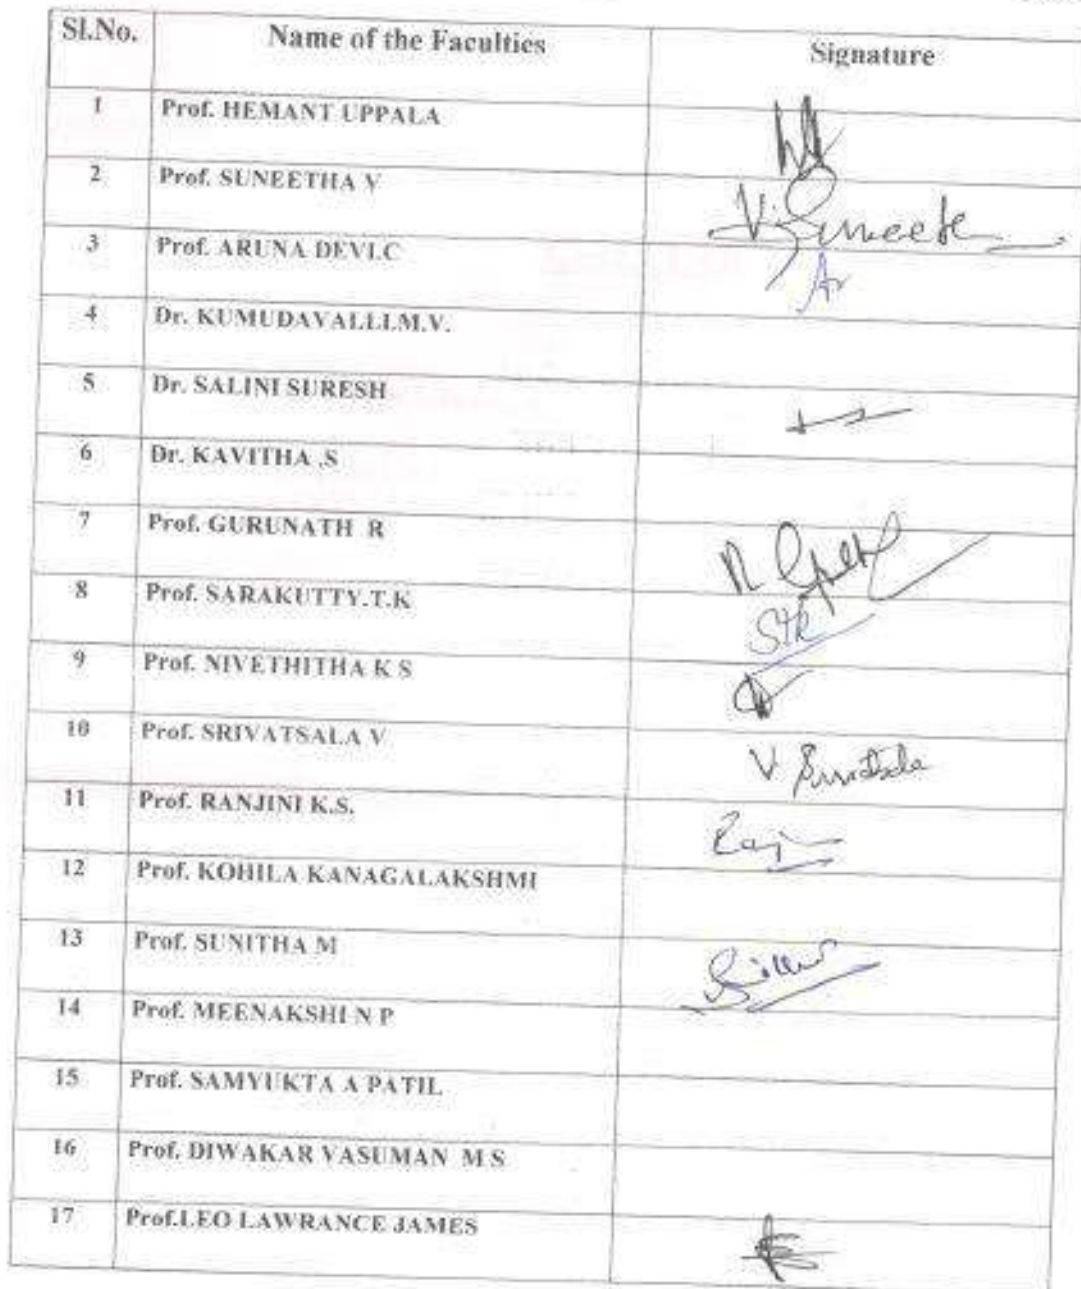 Sl.No. Name of the Faculties Signature
1 Prof. HEMANT UPPALA
2 Prof. SUNEETHA V V. Suneetha
3 Prof. ARUNA DEVI.C Ar
4 Dr. KUMUDAVALLI.M.V.
5 Dr. SALINI SURESH
6 Dr. KAVITHA .S
7 Prof. GURUNATH R
8 Prof. SARAKUTTY.T.K STK
9 Prof. NIVETHITHA K S
10 Prof. SRIVATSALA V V Srivatsala
11 Prof. RANJINI K.S.
12 Prof. KOHILA KANAGALAKSHMI
13 Prof. SUNITHA M
14 Prof. MEENAKSHI N P
15 Prof. SAMYUKTA A PATIL
16 Prof. DIWAKAR VASUMAN M S
17 Prof.LEO LAWRANCE JAMES